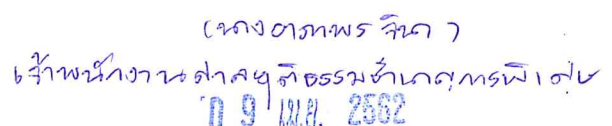 (นางอาภาพร จินา)
เจ้าพนักงานศาลยุติธรรมชำนาญการพิเศษ
0 9 เม.ย. 2562